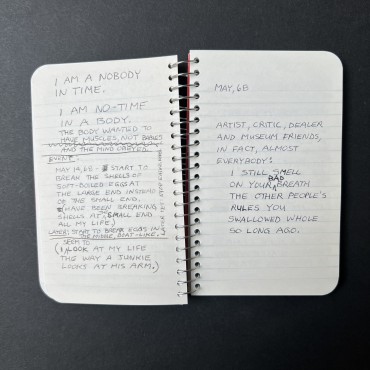 I AM A NOBODY
IN TIME.
I AM NO-TIME
IN A BODY.
THE BODY WANTED TO
HAVE MUSCLES, NOT BABIES
AND THE MIND OBEYED.
EVENT
MAY 14, 65 - START TO
BREAK THE SHELLS OF
SOFT-BOILED EGGS AT
THE LARGE END INSTEAD
OF THE SMALL END,
(HAVE BEEN BREAKING
SHELLS AT SMALL END
ALL MY LIFE)
LATER: START TO BREAK EGGS IN
THE MIDDLE, BOAT-LIKE.
SEEM TO
(I LOOK AT MY LIFE
THE WAY A JUNKIE
LOOKS AT HIS ARM.)
MAY, 68
ARTIST, CRITIC, DEALER
AND MUSEUM FRIENDS,
IN FACT, ALMOST
EVERYBODY:
I STILL SMELL
ON YOUR BAD BREATH
THE OTHER PEOPLE'S
RULES YOU
SWALLOWED WHOLE
SO LONG AGO.